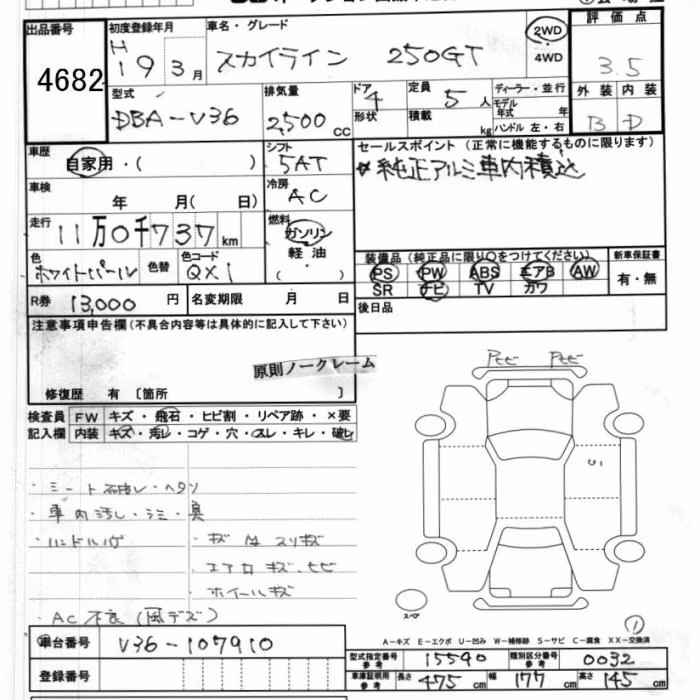 出品番号
4682
初度登録年月
H 19 3月
車名・グレード
スカイライン 250GT
2WD
・
4WD
評価点
3.5
外装 内装
B D
型式
DBA-V36
排気量
2,500 CC
ドア 4
形状
定員 5 人
積載 kg
ディーラー・並行
モデル年式 年
ハンドル 左・右
車歴
自家用・( )
シフト
5AT
車検
年 月( 日)
冷房
AC
走行
11万0千737 km
燃料
ガソリン
・
軽油
( )
色
ホワイトパール
色替
色コード
QX1
R券 13,000 円
名変期限 月 日
セールスポイント(正常に機能するものに限ります)
純正アルミ車内積込
装備品(純正品に限り○をつけてください)
PS PW ABS エアB AW
SR ナビ TV カワ
新車保証書
有・無
後日品
注意事項申告欄(不具合内容等は具体的に記入して下さい)
原則ノークレーム
修復歴 有 〔箇所 〕
検査員記入欄
FW キズ・飛石・ヒビ割・リペア跡・×要
内装 キズ・汚レ・コゲ・穴・スレ・キレ・破レ
・シート
・車内汚レ・シミ・臭
・ハンドル
・キズ スリキズ
・エアロキズ、ヒビ
・ホイールキズ
・AC不良(風デズ)
スペア
1
A-キズ E-エクボ U-凹み W-補修跡 S-サビ C-腐食 XX-交換済
車台番号 V36-107910
登録番号
型式指定番号 参考 15590
類別区分番号 参考 0032
車庫証明用 参考 長さ 475 cm 幅 177 cm 高さ 145 cm